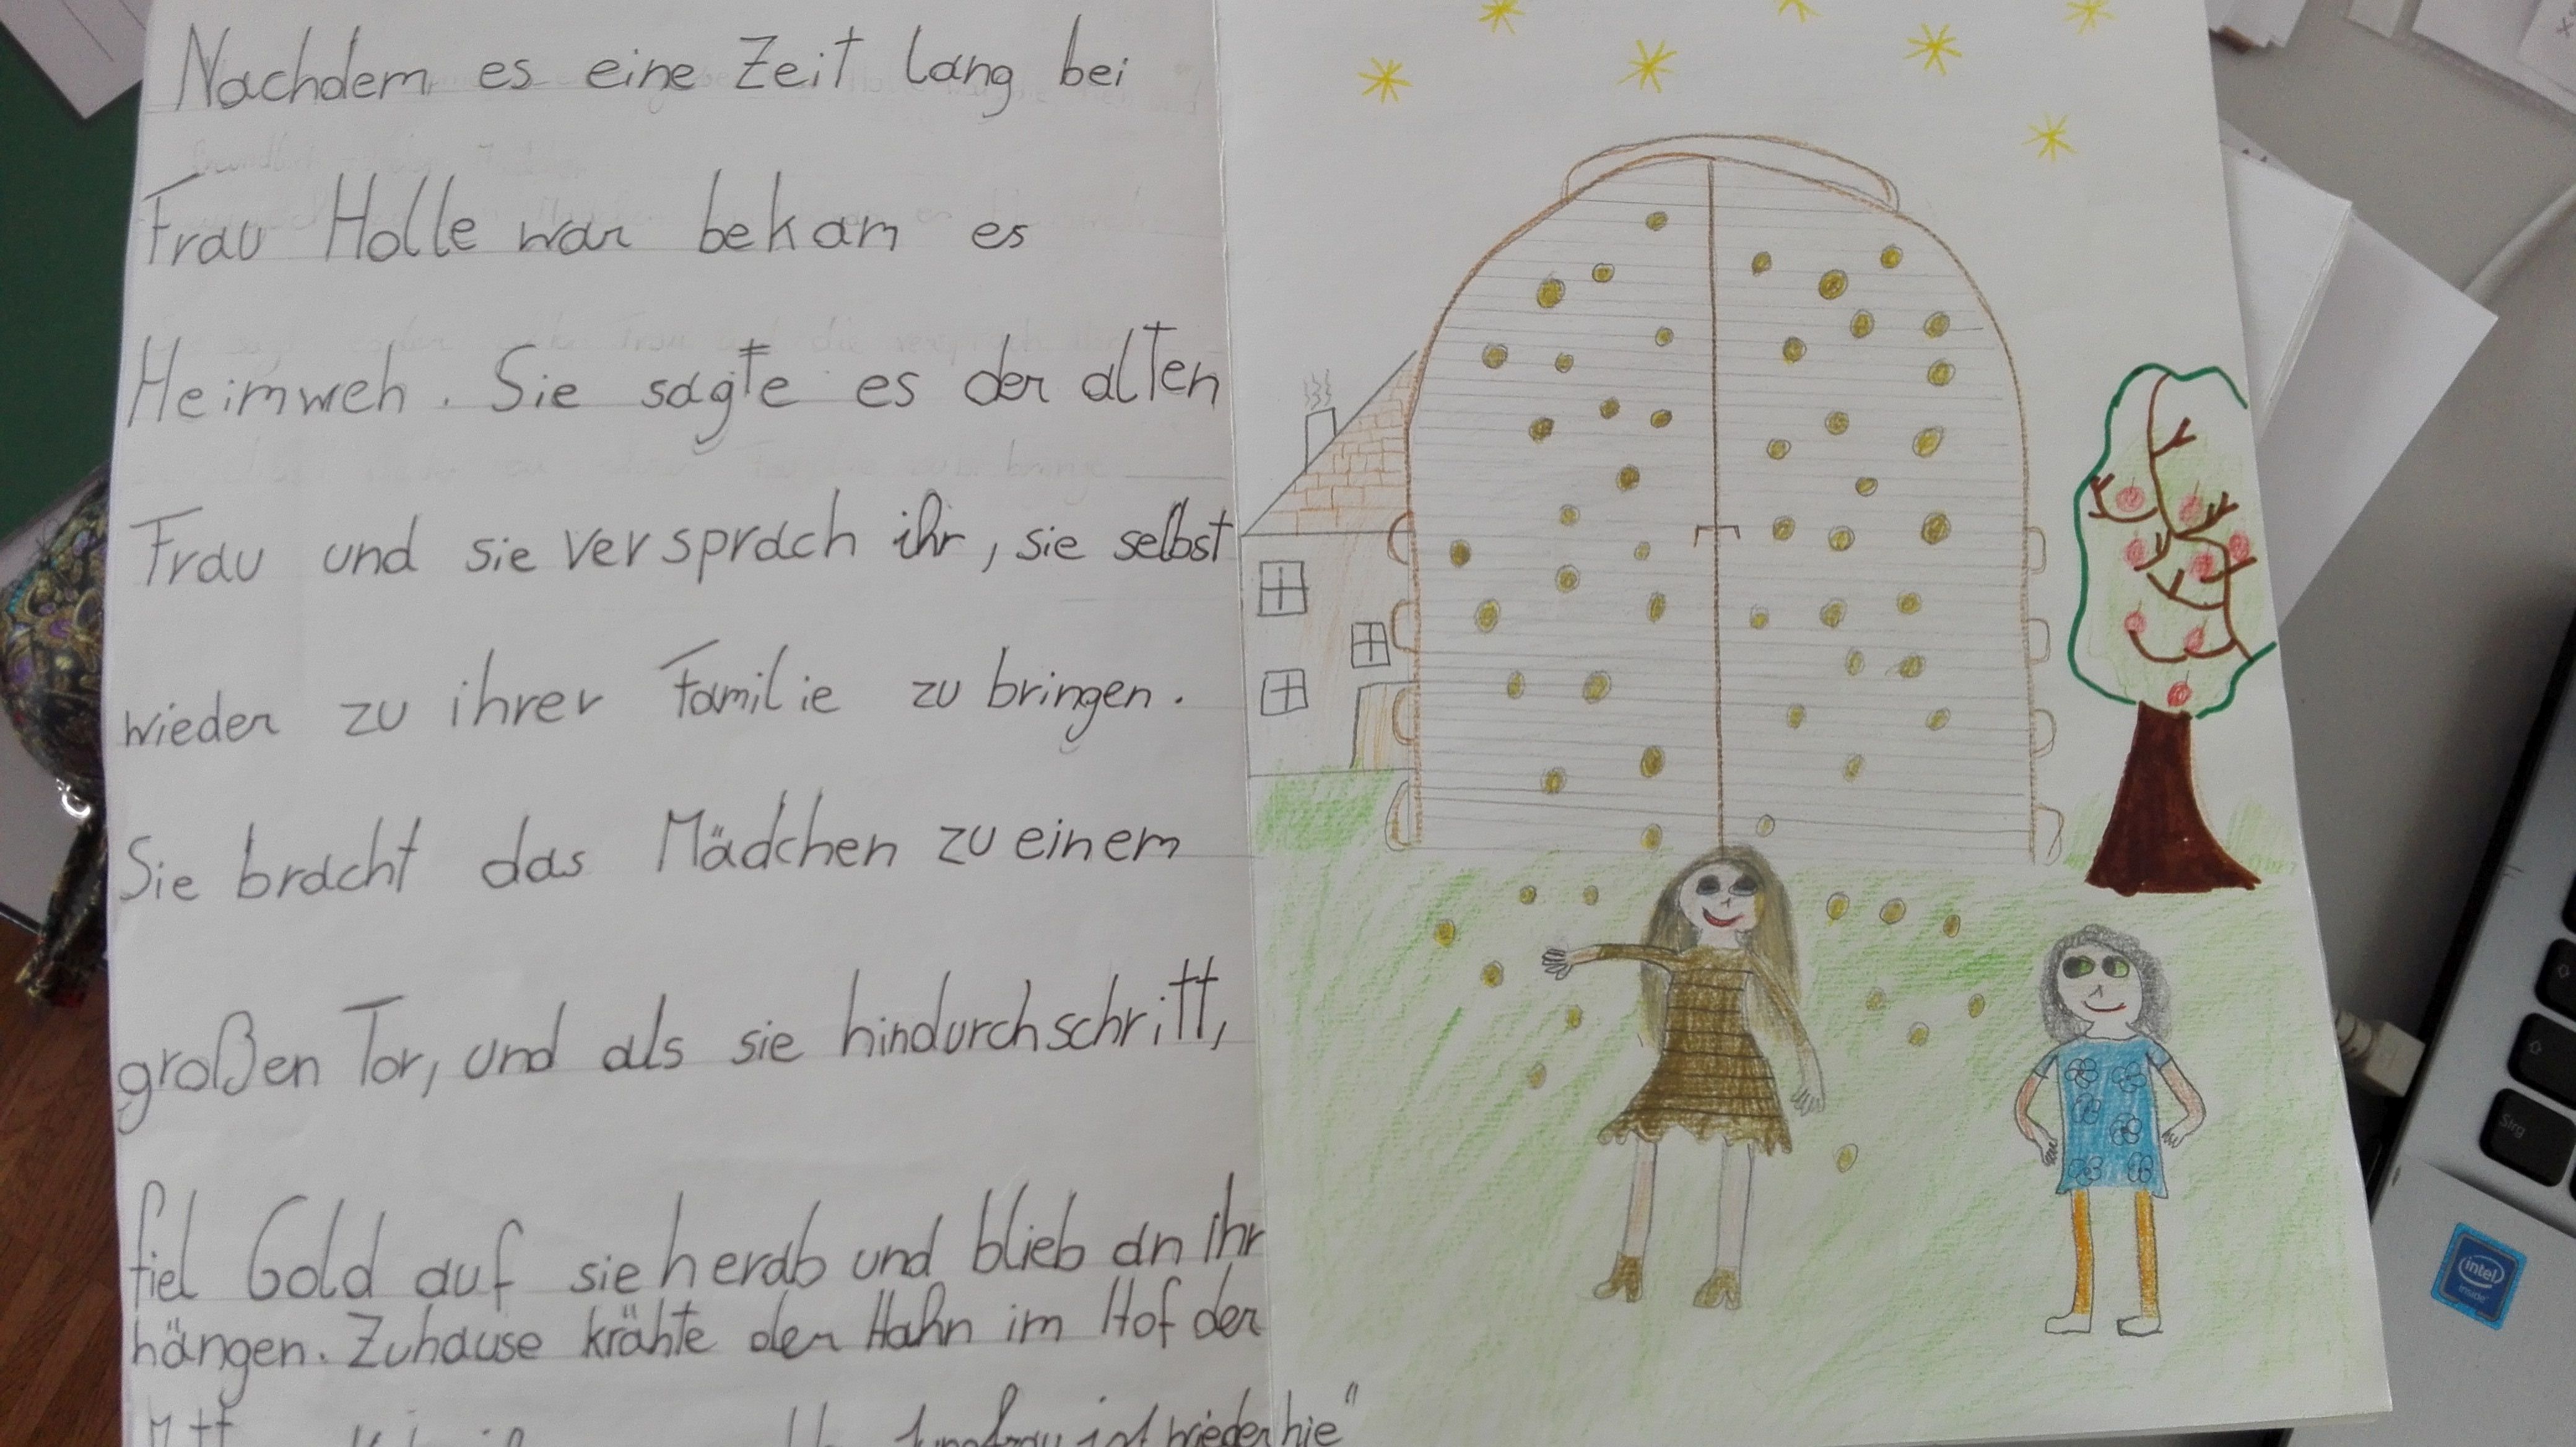 Nachdem es eine Zeit lang bei
Frau Holle war bekam es
Heimweh. Sie sagte es der alten
Frau und sie versprach ihr, sie selbst
wieder zu ihrer Familie zu bringen.
Sie bracht das Mädchen zu einem
großen Tor, und als sie hindurchschritt,
fiel Gold auf sie herab und blieb an ihr
hängen. Zuhause krähte der Hahn im Hof der
Jungfrau ist wieder hie"
Strg
intel
inside